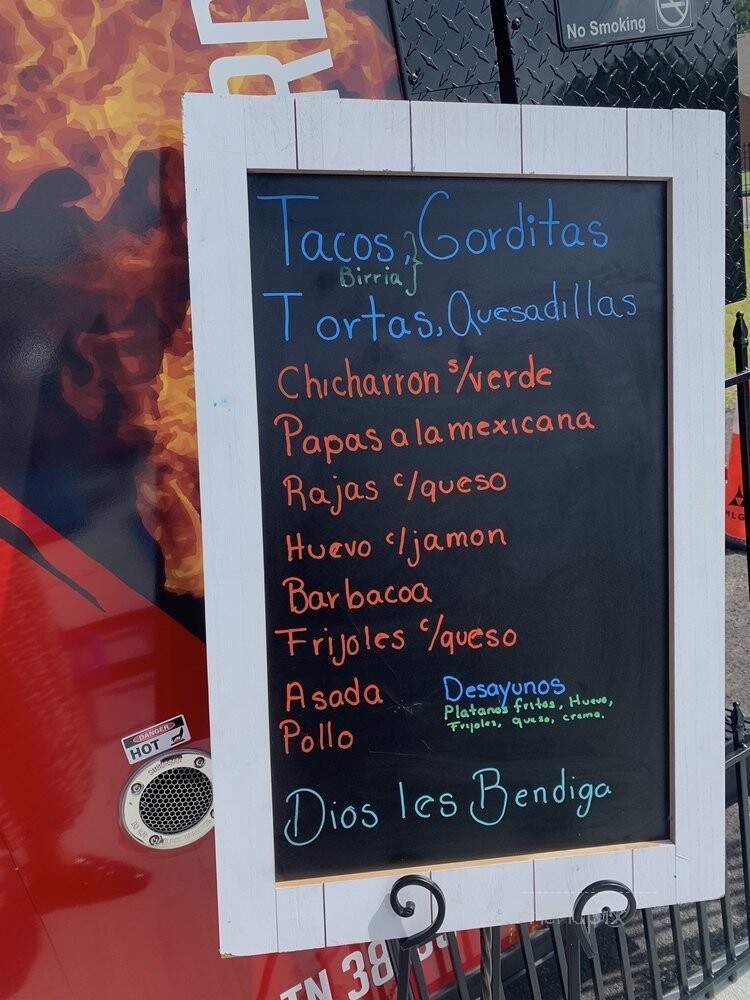 RD
No Smoking
Tacos, Gorditas
Birria }
Tortas, Quesadillas
Chicharron s/verde
Papas a la mexicana
Rajas c/queso
Huevo c/jamon
Barbacoa
Frijoles c/queso
Asada
Pollo
Desayunos
Platanos fritos, Huevo,
Frijoles, queso, crema.
Dios les Bendiga
DANGER
HOT
TN 38